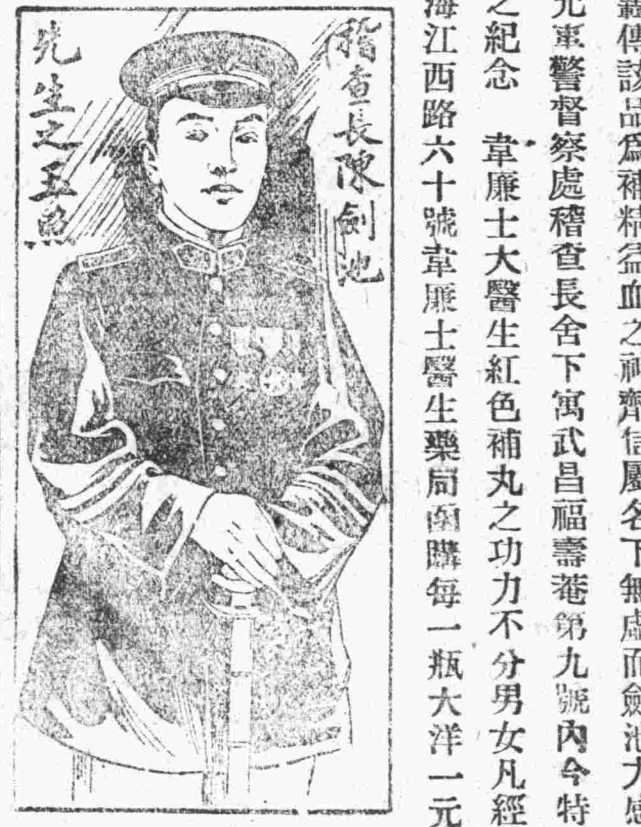 轟傳該品爲補精益血之神劑信屬名下無虛而劍池大感
充軍警督察處稽查長舍下寓武昌福壽菴第九號內今特
之紀念　韋廉士大醫生紅色補丸之功力不分男女凡經
海江西路六十號韋廉士醫生藥局函購每一瓶大洋一元
稽查長陳劍池
先生之玉照